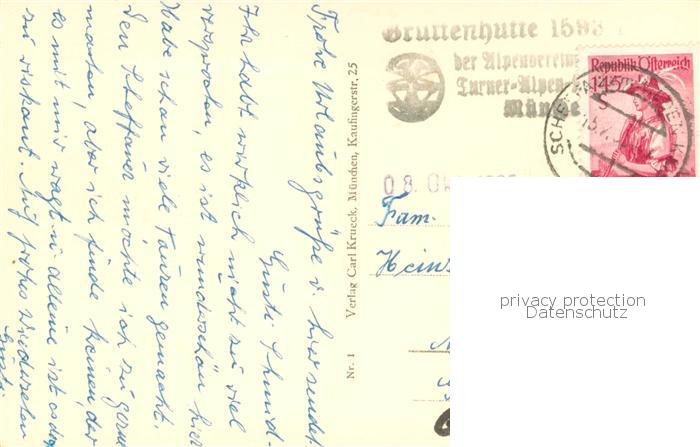 Frohe Urlaubsgrüße v. hier sendet
Gusti Schmid-
Ihr habt wirklich nicht zu viel
versprochen, es ist wunderschön hier
Habe schon viele Touren gemacht.
Den Scheffauer möchte ich zu gern
machen, aber ich finde keinen der
es mit mir wagt u. alleine ist es doch
zu riskant. Auf frohes Wiedersehen
Gusti.
Nr. 1 Verlag Carl Krueck, München, Kaufingerstr. 25
Gruttenhütte 1593
der Alpenvereins
Turner-Alpen-
Münche
Republik Österreich
1.45
SCHEFFAU
08. Okt.
Fam.
Heinz
privacy protection
Datenschutz